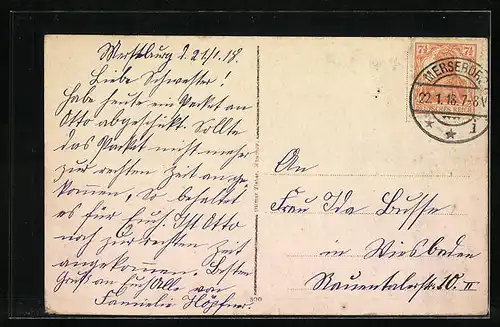 Merseburg d. 21/1. 18.
Liebe Schwester!
Habe heute ein Packet an
Otto abgeschikt. Sollte
das Packit nicht mehr
zur rechten Zeit ange-
kommen, So behaltet
es für Euch. Ist Otto
noch zur rechten Zeit
angekommen. Besten
Gruß an Euch Alle von
Familie Höpfner.
7½ 7½
MERSEBURG
22.1.18.7-8V
1
DEUTSCHES REICH
An
Frau Ida Busse
in Wiesbaden
Rauentalerstr. 10. II
500